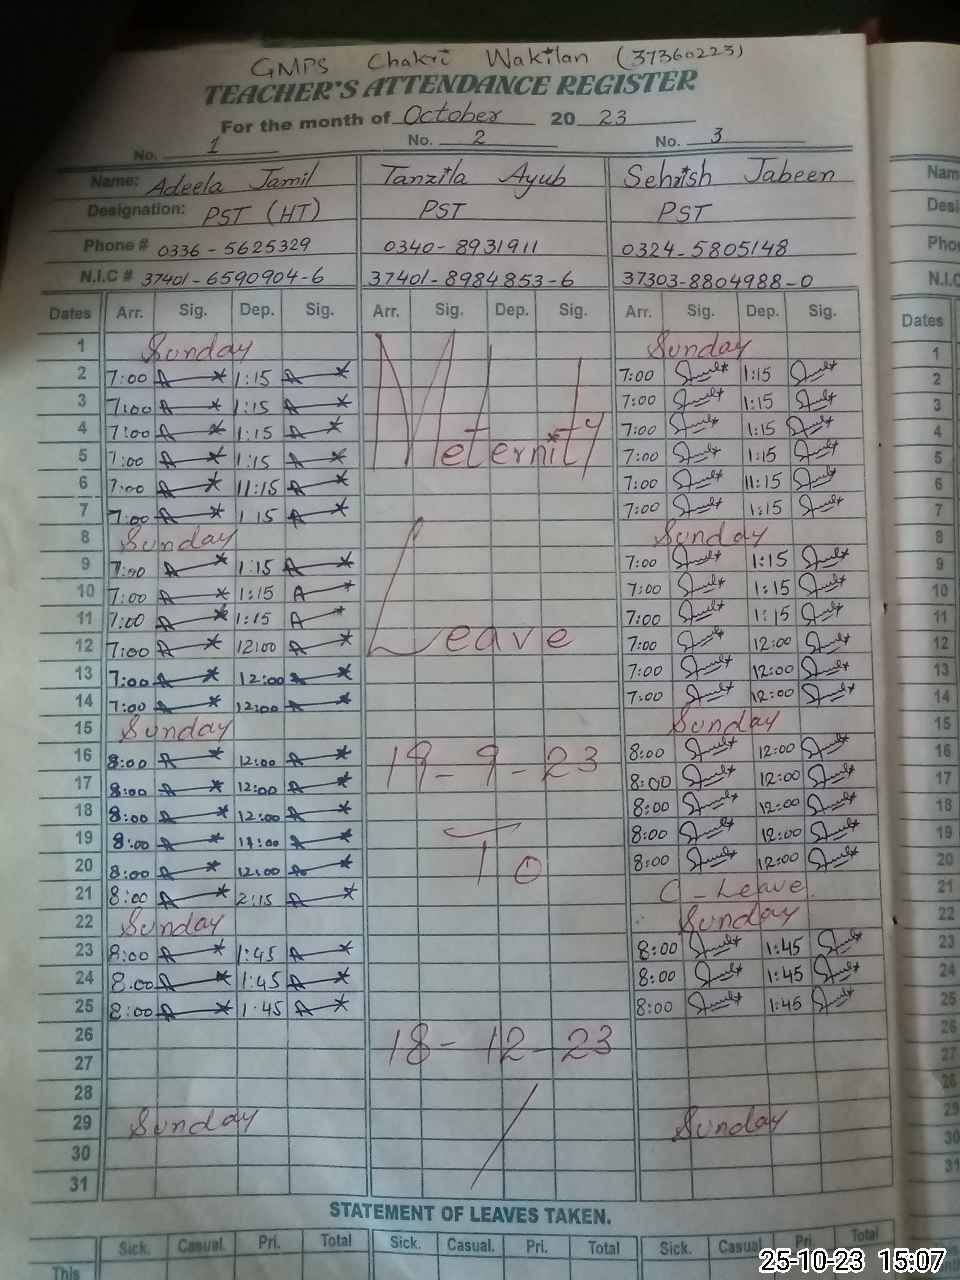 GMPS Chakri Wakilan (37360223)
TEACHER'S ATTENDANCE REGISTER
For the month of October 20 23
No. 1 No. 2 No. 3
Name: Adeela Jamil Tanzila Ayub Sehrish Jabeen
Designation: PST (HT) PST PST
Phone # 0336-5625329 0340-8931911 0324-5805148
N.I.C # 37401-6590904-6 37401-8984853-6 37303-8804988-0
Dates Arr. Sig. Dep. Sig. Arr. Sig. Dep. Sig. Arr. Sig. Dep. Sig.
1 Sunday Sunday
2 7:00 1:15 7:00 1:15
3 7:00 1:15 7:00 1:15
4 7:00 1:15 7:00 1:15
5 7:00 1:15 Meternity 7:00 1:15
6 7:00 11:15 7:00 11:15
7 7:00 1 15 7:00 1:15
8 Sunday Sunday
9 7:00 1:15 7:00 1:15
10 7:00 1:15 7:00 1:15
11 7:00 1:15 7:00 1:15
12 7:00 12:00 Leave 7:00 12:00
13 7:00 12:00 7:00 12:00
14 7:00 12:00 7:00 12:00
15 Sunday Sunday
16 8:00 12:00 19-9-23 8:00 12:00
17 8:00 12:00 8:00 12:00
18 8:00 12:00 8:00 12:00
19 8:00 8:00 12:00
20 8:00 12:00 To 8:00 12:00
21 8:00 2:15 C-Leave.
22 Sunday Sunday
23 8:00 1:45 8:00 1:45
24 8:00 1:45 8:00 1:45
25 8:00 1:45 8:00 1:45
26 18-12-23
27
28
29 Sunday Sunday
30
31
STATEMENT OF LEAVES TAKEN.
Sick. Casual. Pri. Total Sick. Casual. Pri. Total Sick. Casual Pri. Total
This
Nam
Desi
Pho
N.I.C
Dates
1
2
3
4
5
6
7
8
9
10
11
12
13
14
15
16
17
18
19
20
21
22
23
24
25
26
27
28
29
30
31
25-10-23 15:07